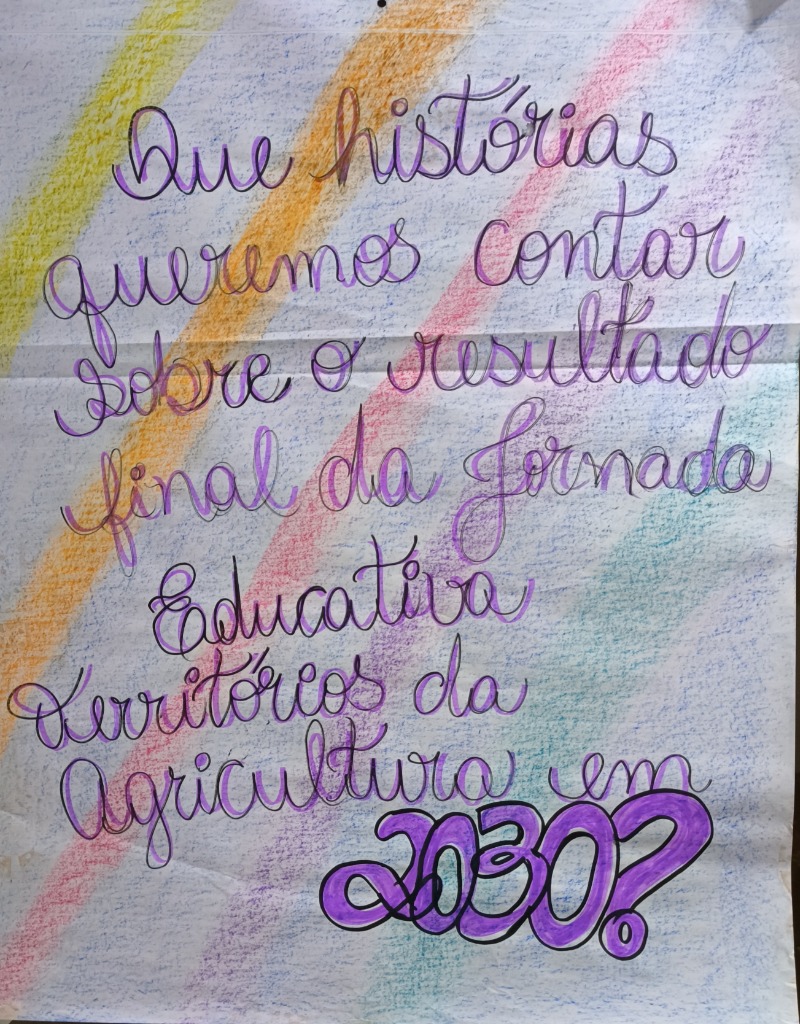 Que histórias
queremos contar
sobre o resultado
final da Jornada
Educativa
Territórios da
Agricultura em
2030?